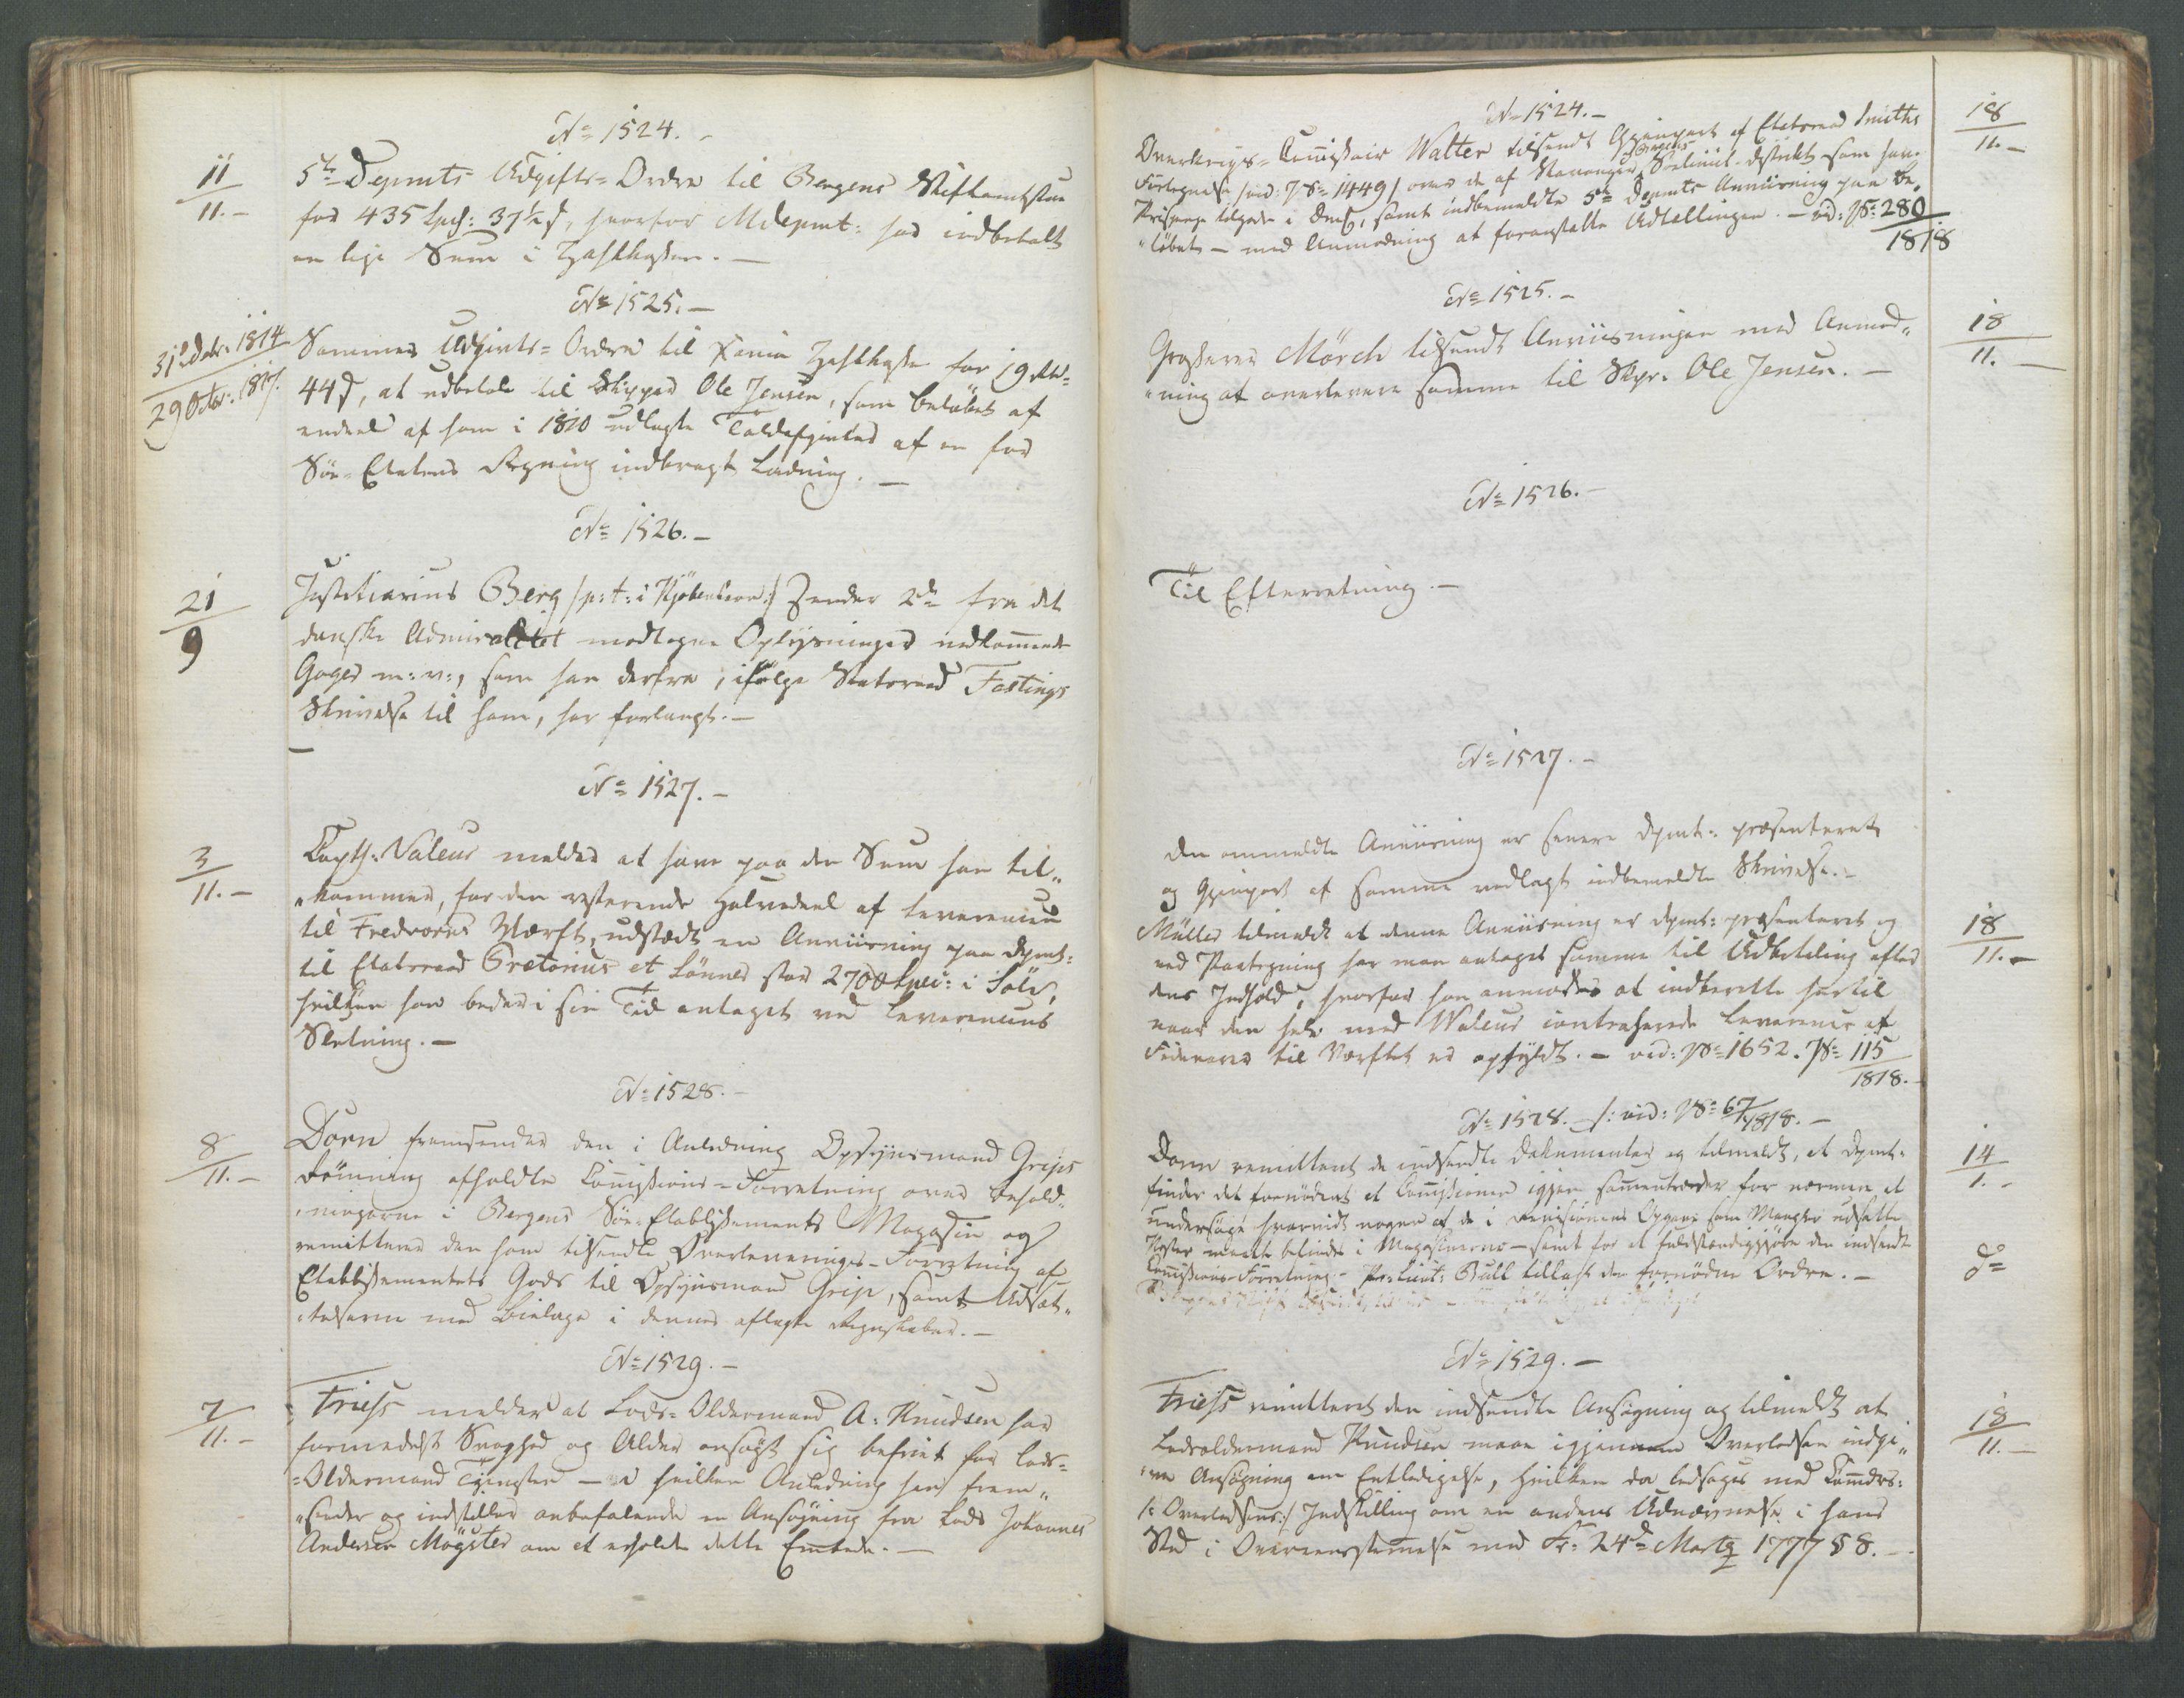 No 1524. -
11
11. -
5te Depmts Udgifts-Ordre til Bergens Stiftamtstue
for 435 Spd: 37½ s, hvorfor Mdepmt: har indbetalt
en lige Sum i Zahlkassen. -
No 1525. -
31te Decbr. 1814
29 Octbr. 1817.
Sammes Udgivts-Ordre til Xania Zahlkasse for 19 Rbd
44 s, at udbetale til Skipper Ole Jensen, som beløbet af
endeel af ham i 1810 udlagte Toldafgivter af en for
Söe-Etatens Regning indbragt Ladning. -
No 1526. -
21
9
Justitiarius Berg /p: t: i Kjøbenhavn:/ sender 2de fra det
danske Admiralitet modtagne Oplysninger vedkommende
Gager m: v:, som han derfra, ifølge Statsraad Fastings
Skrivelse til ham, har forlangt. -
No 1527. -
3
11. -
Capt: Valeur melder at have paa den Sum han til„
„kommer, for den resterende Halvdeel af Leverencen
til Fredværns Værft, udstædt en Anviisning paa Depmt:
til Etatsraad Pretorius et Sönner stor 2700 Spec: i Sölv,
hvilken han beder i sin Tid antaget ved Leverencens
Slutning. -
No 1528. -
8
11. -
Dorn fremsender den i Anledning Opsynsmand Grips
Dömning afholdte Commissions-Forretning over Behold„
„ningerne i Bergens Söe-Etablissements Magasin og
remitterer den ham tilsendte Overleverings-Forretning af
Etablissementets Gods til Opsynsmand Grip, samt Udsæt„
„telserne med Bielage i dennes aflagte Regnskaber. -
No 1529. -
7
11. -
Friess melder at Lods-Oldermand A: Knudsen har
formedelst Svaghed og Alder ansøgt sig befriet for Lods-
-Oldermand Tjenesten - i hvilken Anledning han frem„
„sender og indstiller anbefalende en Ansøgning fra Lods Johannes
Andersen Møgster om at erholde dette Embede. -
No 1524. -
18
11. -
Overkrigs-Commissair Walter tilsendt Gjenpart af Etatsraad Smiths
Fortegnelse /vid: No 1449/ over de af Stavanger Bergens Rulliit-Distrikt som have
Prispenge tilgode i Dmk, samt indbemeldte 5te Depmts Anviisning paa Be„
„løbet - med Anmodning at foranstalte Udtællingen. - vid: No 280
1818
No 1525. -
18
11. -
Grosserer Mörch tilsendt Anviisningen med Anmod„
„ning at overlevere samme til Skpr. Ole Jensen. -
No 1526. -
Til Efterretning. -
No 1527. -
Den ommeldte Anviisning er senere Dpmt: præsenteret
og Gjenpart af samme vedlagt indbemeldte Skrivelse. -
18
11. -
Müller tilmeldt at denne Anviisning er Dpmt: præsenteret og
ved Paategning har man antaget samme til Udbetaling efter
dens Indhold, hvorfor han anmodes at indberette hertil
naar den hele med Waleur contraherede Leverence af
til Værftet er opfyldt. - vid: No 1652. No 115
1818. -
No 1528. - /: vid: No 67/1818. -
14
1. -
Dorn remitteret de indsendte Dokumenter og tilmeldt, at Dpmt:
finder det fornödent at Commissionen igjen sammentræder for nærmere at
undersöge hvorvidt nogen af de i Revisionens Opgave som Mangler udsatte
Poster maatte befindes i Magasinerne - samt for at fuldstændiggjöre den indsendte
do
Commissions-Forretning - Pr: Lieut: Bull tillagt den fornödne Ordre. -
No 1529. -
18
11. -
Friess remitteret den indsendte Ansøgning og tilmeldt at
Lodsoldermand Knudsen maae igjennem Overlodsen indgi„
„ve Ansøgning om Entledigelse, hvilken da ledsages med Commdrs:
/: Overlodsens:/ Indstilling om en andens Udnævnelse i hans
Sted i Overeensstemmelse med Fr: 24de Marty 1777 § 8. -